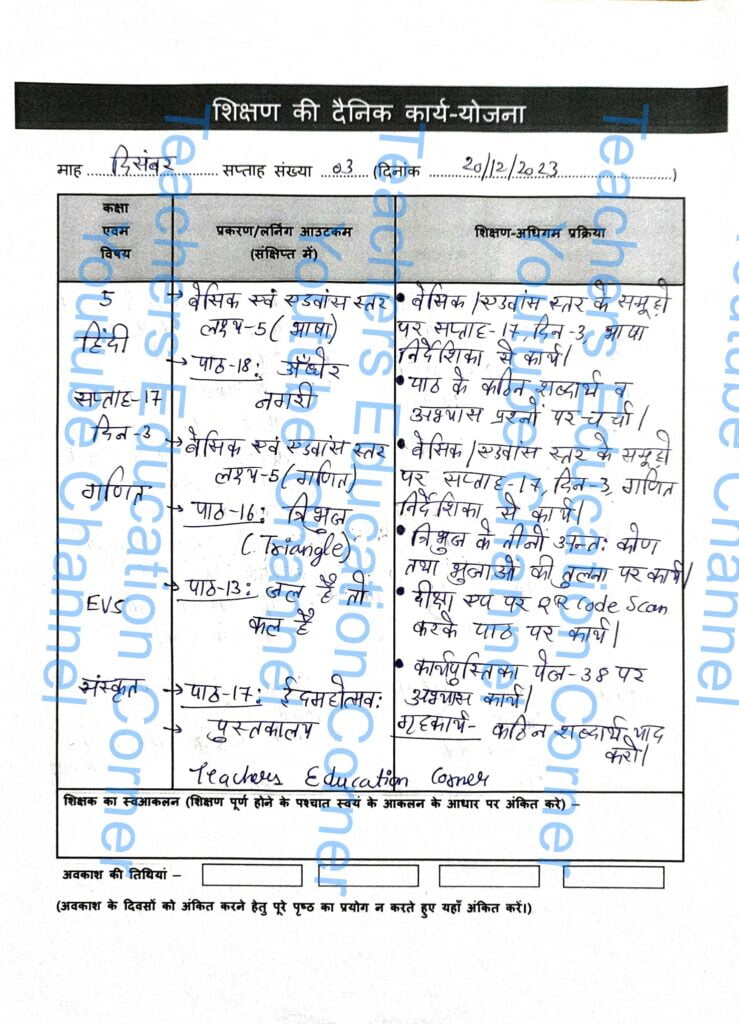 शिक्षण की दैनिक कार्य-योजना
माह दिसंबर सप्ताह संख्या 03 (दिनांक 20/12/2023)
कक्षा एवम विषय
प्रकरण/लर्निंग आउटकम (संक्षिप्त में)
शिक्षण-अधिगम प्रक्रिया
5
हिंदी
सप्ताह-17
दिन-3
→ बेसिक एवं एडवांस स्तर
लक्ष्य-5 (भाषा)
→ पाठ-18: अँधेर
नगरी
• बेसिक/एडवांस स्तर के समूहों
पर सप्ताह-17, दिन-3, भाषा
निर्देशिका से कार्य।
• पाठ के कठिन शब्दार्थ व
अभ्यास प्रश्नों पर चर्चा।
गणित
→ बेसिक एवं एडवांस स्तर
लक्ष्य-5 (गणित)
→ पाठ-16: त्रिभुज
(Triangle)
• बेसिक/एडवांस स्तर के समूहों
पर सप्ताह-17, दिन-3, गणित
निर्देशिका से कार्य।
• त्रिभुज के तीनों अन्तः कोण
तथा भुजाओं की तुलना पर कार्य।
EVS
→ पाठ-13: जल है तो
कल है
• दीक्षा एप पर QR Code Scan
करके पाठ पर कार्य।
संस्कृत
→ पाठ-17: ईदमहोत्सवः
→ पुस्तकालय
• कार्यपुस्तिका पेज-38 पर
अभ्यास कार्य।
गृहकार्य- कठिन शब्दार्थ याद
करो।
Teachers Education Corner
शिक्षक का स्वआकलन (शिक्षण पूर्ण होने के पश्चात स्वयं के आकलन के आधार पर अंकित करे) –
अवकाश की तिथियां –
(अवकाश के दिवसों को अंकित करने हेतु पूरे पृष्ठ का प्रयोग न करते हुए यहाँ अंकित करें।)
Teachers Education Corner
Youtube Channel
Teachers Education Corner
Youtube Channel
Teachers Education Corner
Youtube Channel